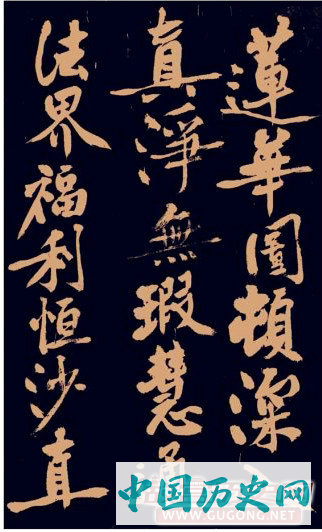 蓮華圖頓澡
真淨無瑕慧通
法界福利恒沙直
中国历史网
WWW.GUGONG.NET